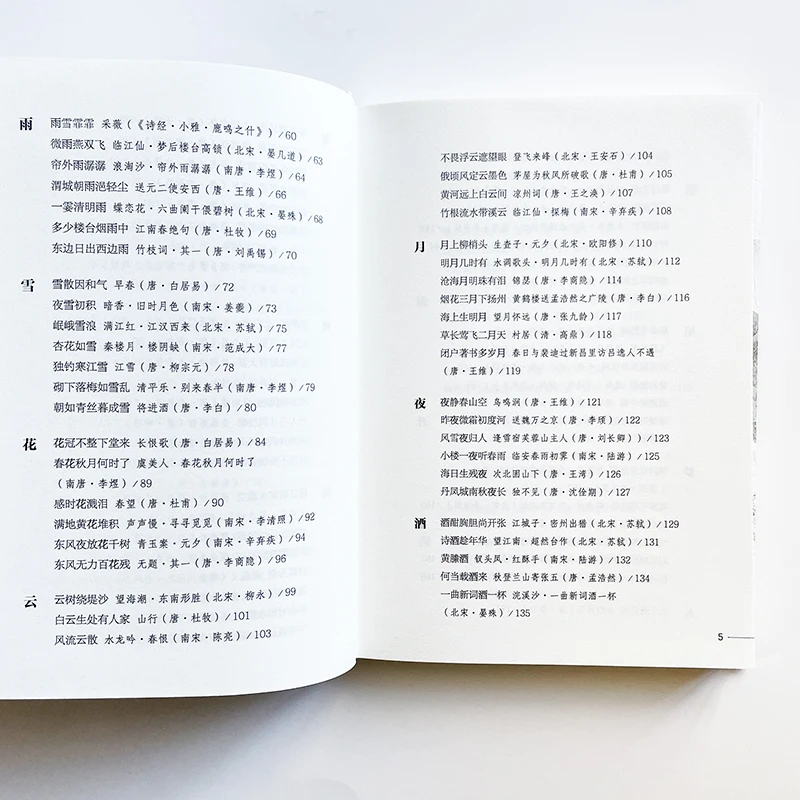 雨 雨雪霏霏 采薇(《诗经·小雅·鹿鸣之什》)/60
微雨燕双飞 临江仙·梦后楼台高锁(北宋·晏几道)/63
帘外雨潺潺 浪淘沙·帘外雨潺潺(南唐·李煜)/64
渭城朝雨浥轻尘 送元二使安西(唐·王维)/66
一霎清明雨 蝶恋花·六曲阑干偎碧树(北宋·晏殊)/68
多少楼台烟雨中 江南春绝句(唐·杜牧)/69
东边日出西边雨 竹枝词·其一(唐·刘禹锡)/70
雪 雪散因和气 早春(唐·白居易)/72
夜雪初积 暗香·旧时月色(南宋·姜夔)/73
岷峨雪浪 满江红·江汉西来(北宋·苏轼)/75
杏花如雪 秦楼月·楼阴缺(南宋·范成大)/77
独钓寒江雪 江雪(唐·柳宗元)/78
砌下落梅如雪乱 清平乐·别来春半(南唐·李煜)/79
朝如青丝暮成雪 将进酒(唐·李白)/80
花 花冠不整下堂来 长恨歌(唐·白居易)/84
春花秋月何时了 虞美人·春花秋月何时了
(南唐·李煜)/89
感时花溅泪 春望(唐·杜甫)/90
满地黄花堆积 声声慢·寻寻觅觅(南宋·李清照)/92
东风夜放花千树 青玉案·元夕(南宋·辛弃疾)/94
东风无力百花残 无题·其一(唐·李商隐)/96
云 云树绕堤沙 望海潮·东南形胜(北宋·柳永)/99
白云生处有人家 山行(唐·杜牧)/101
风流云散 水龙吟·春恨(南宋·陈亮)/103
不畏浮云遮望眼 登飞来峰(北宋·王安石)/104
俄顷风定云墨色 茅屋为秋风所破歌(唐·杜甫)/105
黄河远上白云间 凉州词(唐·王之涣)/107
竹根流水带溪云 临江仙·探梅(南宋·辛弃疾)/108
月 月上柳梢头 生查子·元夕(北宋·欧阳修)/110
明月几时有 水调歌头·明月几时有(北宋·苏轼)/112
沧海月明珠有泪 锦瑟(唐·李商隐)/114
烟花三月下扬州 黄鹤楼送孟浩然之广陵(唐·李白)/116
海上生明月 望月怀远(唐·张九龄)/117
草长莺飞二月天 村居(清·高鼎)/118
闭户著书多岁月 春日与裴迪过新昌里访吕逸人不遇
(唐·王维)/119
夜 夜静春山空 鸟鸣涧(唐·王维)/121
昨夜微霜初度河 送魏万之京(唐·李颀)/122
风雪夜归人 逢雪宿芙蓉山主人(唐·刘长卿))/123
小楼一夜听春雨 临安春雨初霁(南宋·陆游)/125
海日生残夜 次北固山下(唐·王湾)/126
丹凤城南秋夜长 独不见(唐·沈佺期)/127
酒 酒酣胸胆尚开张 江城子·密州出猎(北宋·苏轼)/129
诗酒趁年华 望江南·超然台作(北宋·苏轼)/131
黄縢酒 钗头凤·红酥手(南宋·陆游)/132
何当载酒来 秋登兰山寄张五(唐·孟浩然)/134
一曲新词酒一杯 浣溪沙·一曲新词酒一杯
(北宋·晏殊)/135
5